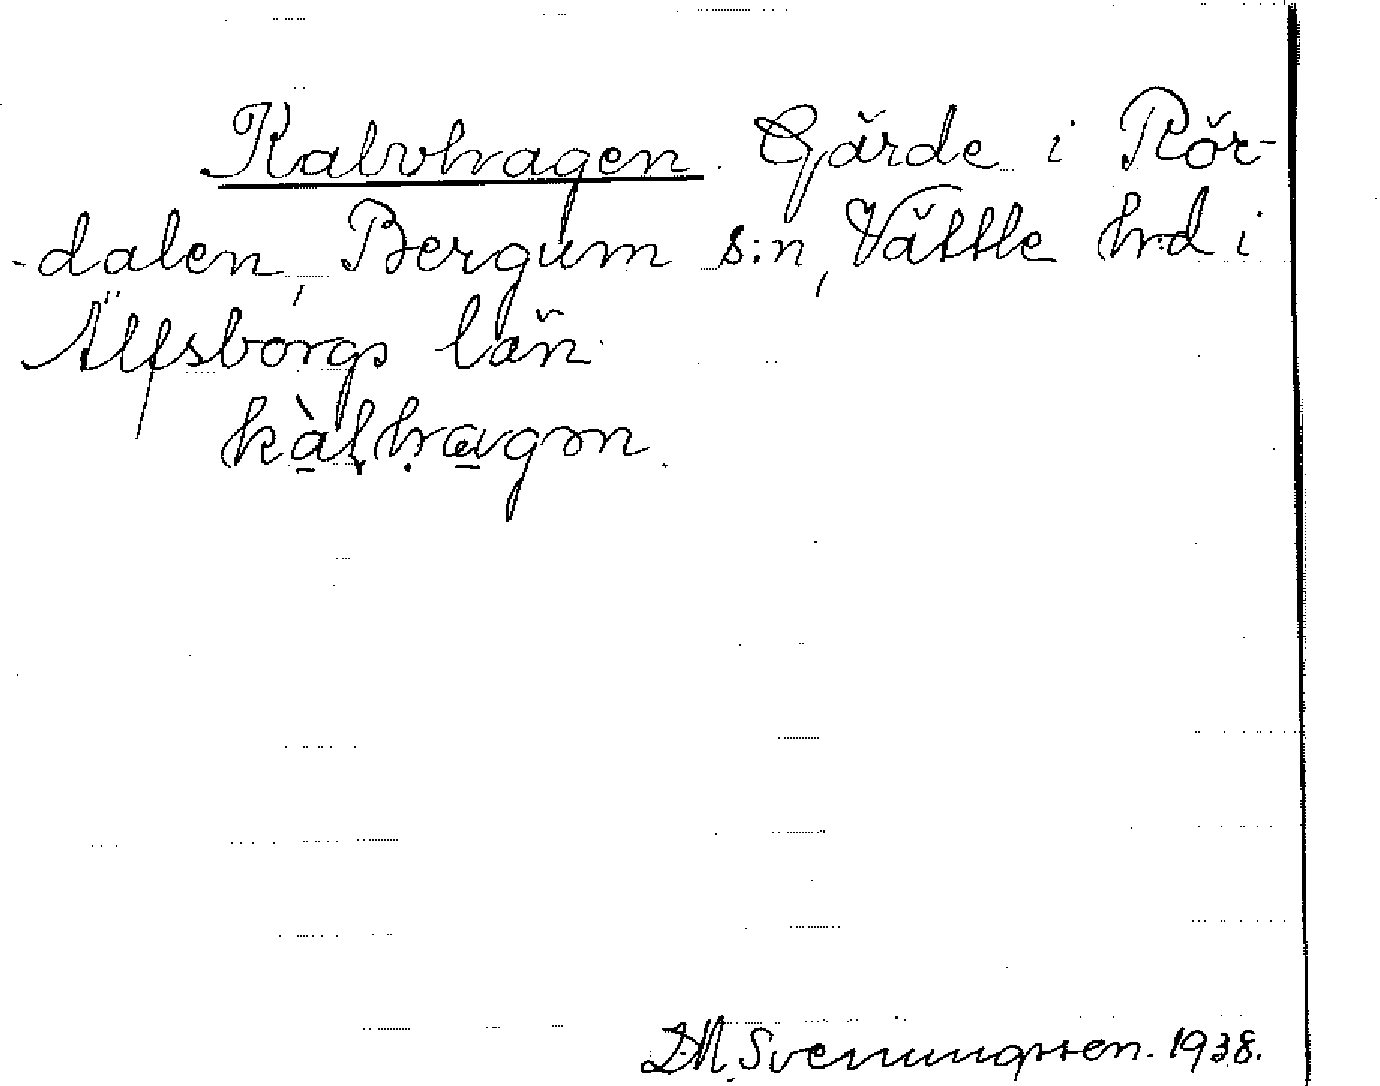 Kalvhagen. Gärde i Rör-
-dalen, Bergum s:n, Vättle hrd i
Älfsborgs län.
kàlhagən.
D.M. Svenungsson. 1938.